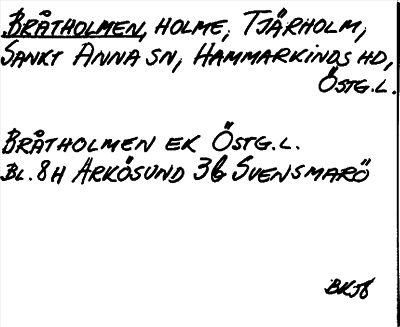 BRÅTHOLMEN, HOLME, TJÄRHOLM,
SANKT ANNA SN, HAMMARKINDS HD,
ÖSTG.L.
BRÅTHOLMEN EK ÖSTG.L.
BL. 8H ARKÖSUND 3b SVENSMARÖ